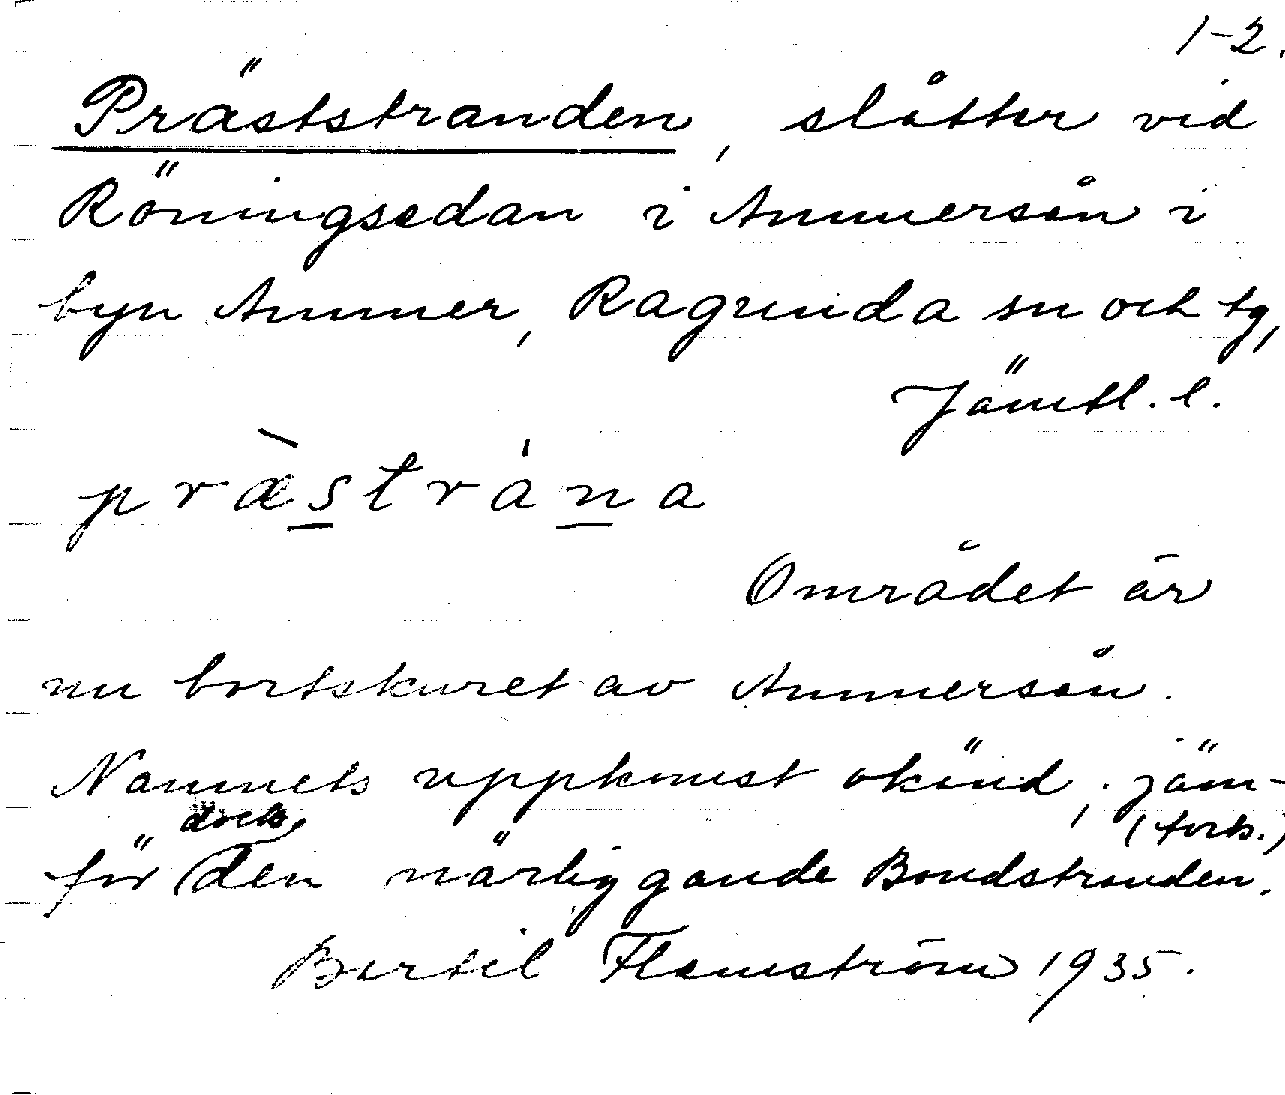 1-2.
Präststranden, slåtter vid
Röningsedan i Ammerån i
byn Ammer, Ragunda sn och tg,
Jämtl. l.
præ̀strána
Området är
nu bortskuret av Ammerån.
Namnets uppkomst okänd; jäm-
dock (forts.)
för den närliggande Bondstranden.
Bertil Flemström 1935.